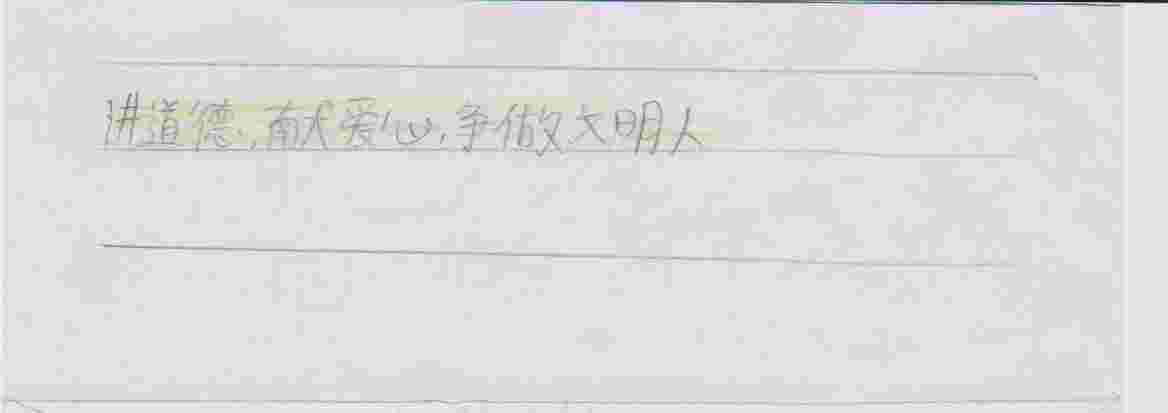 讲道德,献爱心,争做文明人